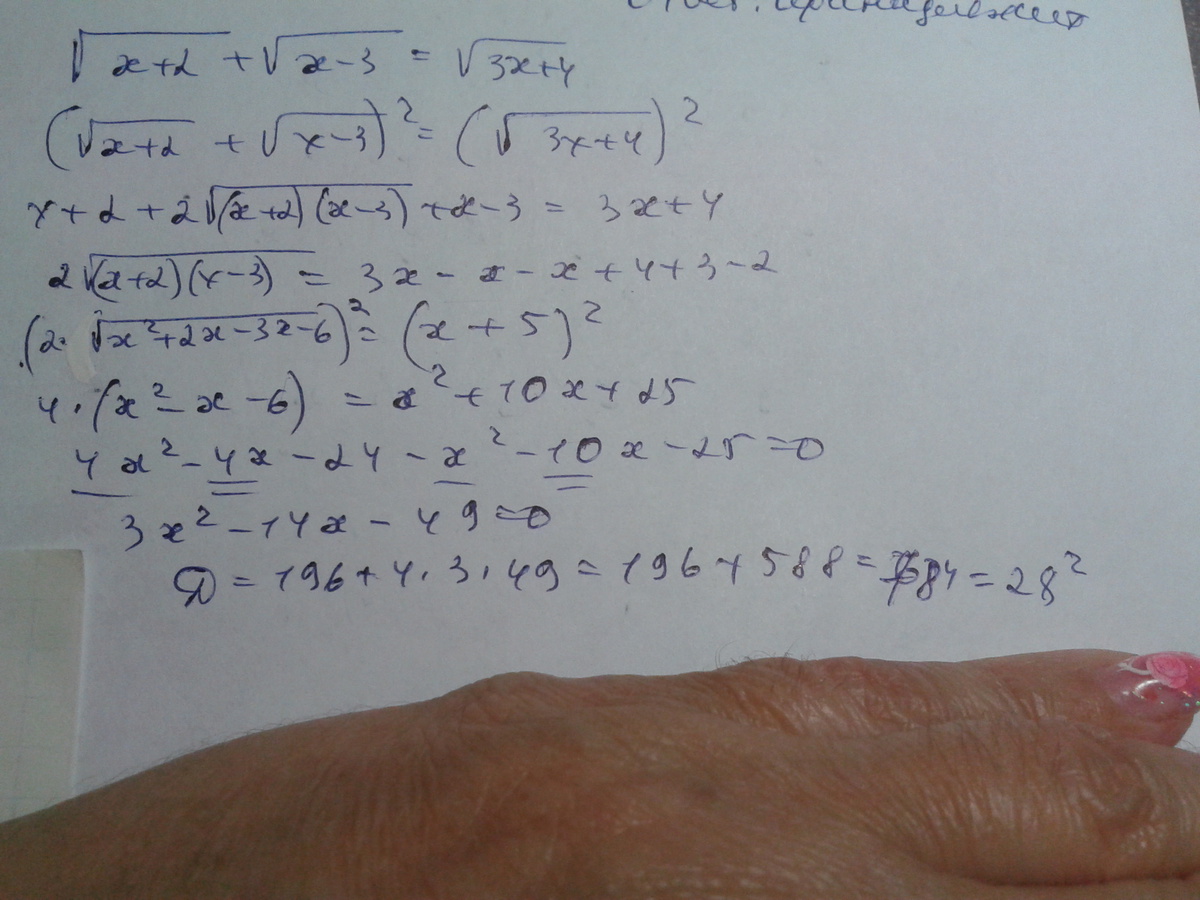 Ответ: принадлежит
√(x+2) + √(x-3) = √(3x+4)
(√(x+2) + √(x-3))² = (√(3x+4))²
x+2+2√((x+2)(x-3)) +x-3 = 3x+4
2√((x+2)(x-3)) = 3x-x-x+4+3-2
(2·√(x²+2x-3x-6))² = (x+5)²
4·(x²-x-6) = x²+10x+25
4x²-4x-24-x²-10x-25=0
3x²-14x-49=0
Д=196+4·3·49=196+588=784=28²